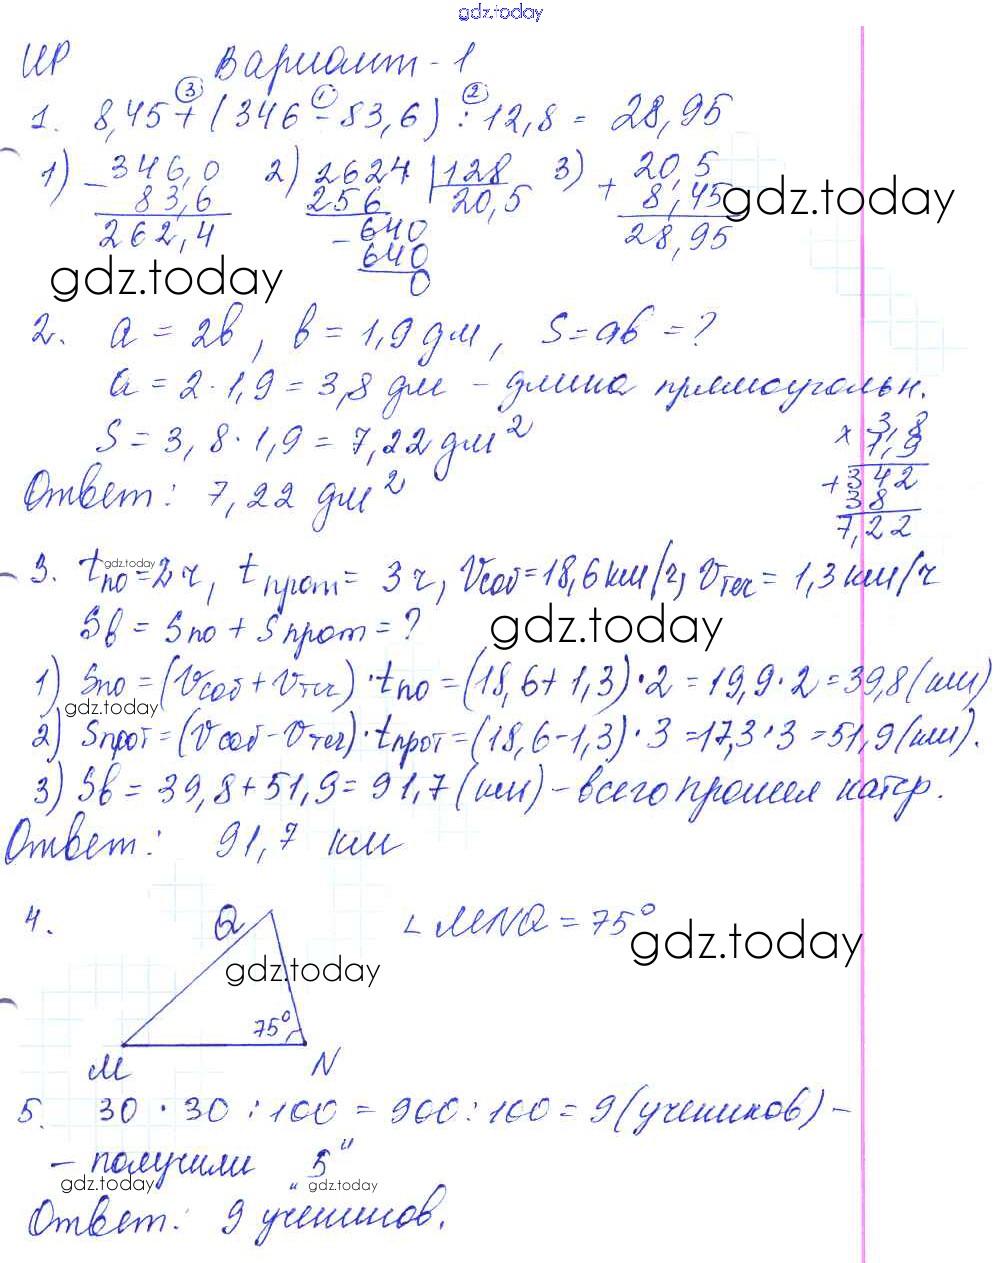 gdz.today
ИР Вариант-1
1. 8,45 + (346 - 83,6) : 12,8 = 28,95
③ ① ②
1) 346,0 2) 2624 | 128 3) 20,5
- 83,6 256 20,5 + 8,45
262,4 - 640 28,95
640
0
gdz.today
gdz.today
2. a = 2b, b = 1,9 дм, S = ab = ?
a = 2 · 1,9 = 3,8 дм - длина прямоугольн.
S = 3,8 · 1,9 = 7,22 дм²
Ответ: 7,22 дм²
× 3,8
1,9
+ 342
38
7,22
3. tпо = 2 ч, tпрот = 3 ч, Vсоб = 18,6 км/ч, Vтеч = 1,3 км/ч
gdz.today
Sв = Sпо + Sпрот = ?
gdz.today
1) Sпо = (Vсоб + Vтеч) · tпо = (18,6 + 1,3) · 2 = 19,9 · 2 = 39,8 (км)
gdz.today
2) Sпрот = (Vсоб - Vтеч) · tпрот = (18,6 - 1,3) · 3 = 17,3 · 3 = 51,9 (км).
3) Sв = 39,8 + 51,9 = 91,7 (км) - всего прошел катер.
Ответ: 91,7 км
4. Q ∠ MNQ = 75°
gdz.today
gdz.today
75°
M N
5. 30 · 30 : 100 = 900 : 100 = 9 (учеников) -
- получили „5"
gdz.today
gdz.today
Ответ: 9 учеников.